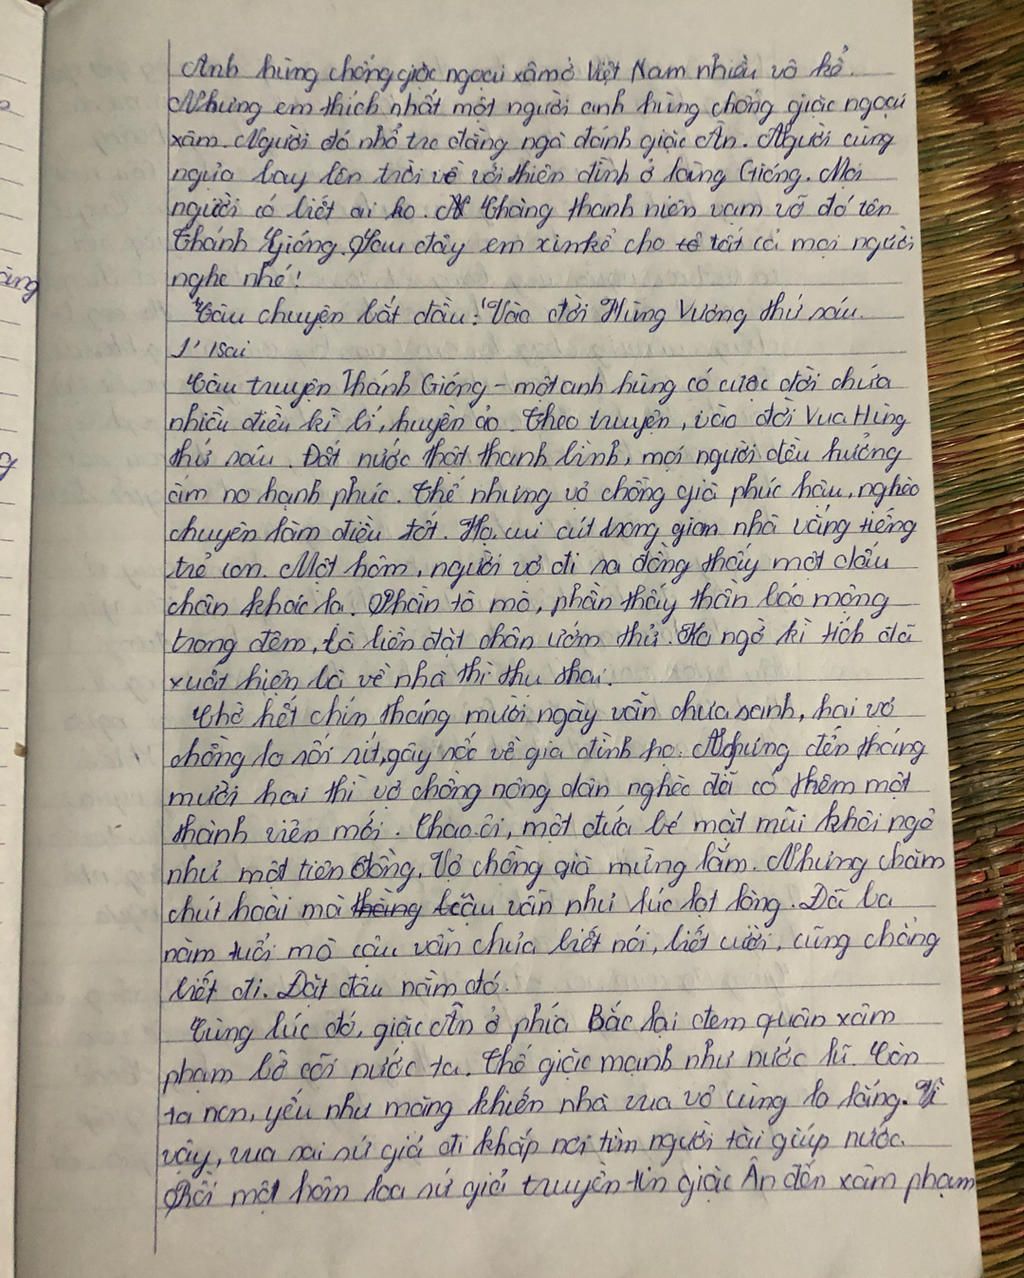 Anh hùng chống giặc ngoại xâm ở Việt Nam nhiều vô kể.
Nhưng em thích nhất một người anh hùng chống giặc ngoại
xâm. Người đó nhổ tre đằng ngà đánh giặc Ân. Người cùng
ngựa bay lên trời về với thiên đình ở làng Gióng. Mọi
người có biết ai ko. Chàng thanh niên vam vỡ đó tên
Thánh Gióng. Sau đây em xin kể cho tất cả mọi người
nghe nhé!
Câu chuyện bắt đầu: Vào đời Hùng Vương thứ sáu.
1' sai
Câu truyện Thánh Gióng - một anh hùng có cuộc đời chứa
nhiều điều kì lí, huyền ảo. Theo truyện, vào đời Vua Hùng
thứ sáu. Đất nước thật thanh bình, mọi người đều hưởng
ấm no hạnh phúc. Thế nhưng vợ chồng già phúc hậu, nghèo
chuyên làm điều tốt. Họ cui cút trong gian nhà vắng tiếng
trẻ con. Một hôm, người vợ đi ra đồng thấy một dấu
chân khác lạ. Phần tò mò, phần thấy thần báo mộng
trong đêm, bà liền đặt chân ướm thử. Ko ngờ kì tích đã
xuất hiện bà về nhà thì thụ thai.
Chờ hết chín tháng mười ngày vẫn chưa sanh, hai vợ
chồng lo sốt sít, gây sốc về gia đình họ. Nhưng đến tháng
mười hai thì vợ chồng nông dân nghèo đã có thêm một
thành viên mới. Chao ôi, một đứa bé mặt mũi khôi ngô
như một tiên đồng. Vợ chồng già mừng lắm. Nhưng chăm
chút hoài mà thằng cậu vẫn như lúc lọt lòng. Đã ba
năm tuổi mà cậu vẫn chưa biết nói, biết cười, cũng chẳng
biết đi. Đặt đâu nằm đó.
Cùng lúc đó, giặc Ân ở phía Bắc lại đem quân xâm
phạm bờ cõi nước ta. Thế giặc mạnh như nước lũ. Còn
ta non, yếu như măng khiến nhà vua vô cùng lo lắng. Vì
vậy, vua sai sứ giả đi khắp nơi tìm người tài giúp nước.
Rồi một hôm loa sứ giả truyền tin giặc Ân đến xâm phạm